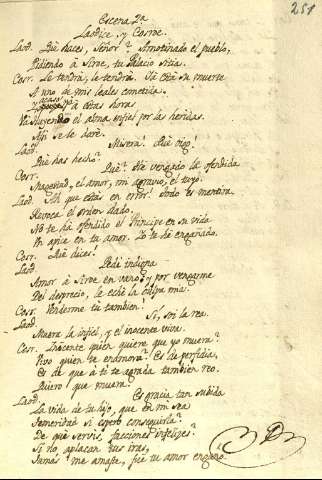 251
Escena 2ª
Laodice, y Cosroe.
Laod. Qué haces, Señor? Amotinado el pueblo,
Pidiendo à Siroe, tu Palacio sitia.
Cosr. Le tendrá, le tendrá. Yá està su muerte
A uno de mis leales cometida.
Y acaso à estas horas
Vá huyendo el alma infiel por las heridas.
Assi se le daré.
Laod. Misera! Qué oigo!
Qué has hecho?
Cosr. Qué? He vengado la ofendida
Magestad, el amor, mi agravio, el tuyo.
Laod. Ah que estás en error! Todo es mentira.
Revoca el orden dado.
No te há ofendido el Principe en su vida
Un apice en tu amor. Yo te hé engañado.
Cosr. Qué dices?
Laod. Pedí indigna
Amor à Siroe en vano; y por vengarme
Del desprecio, le eché la culpa mia.
Cosr. Venderme tu tambien!
Laod. Si, soi la rea.
Muera la infiel, y el inocente viva.
Cosr. Inocente quien quiere que yo muera?
Vivo quien te enamora? Es de perfidia,
Es de que à ti te agrada tambien reo.
Quiero que muera.
Laod. Es gracia tan subida
La vida de tu hijo, que en mi sea
Temeridad si espero conseguirla?
De qué servis, facciones infelizes?
Si no aplacan tus iras,
Jamás me amaste, fue tu amor engaño.